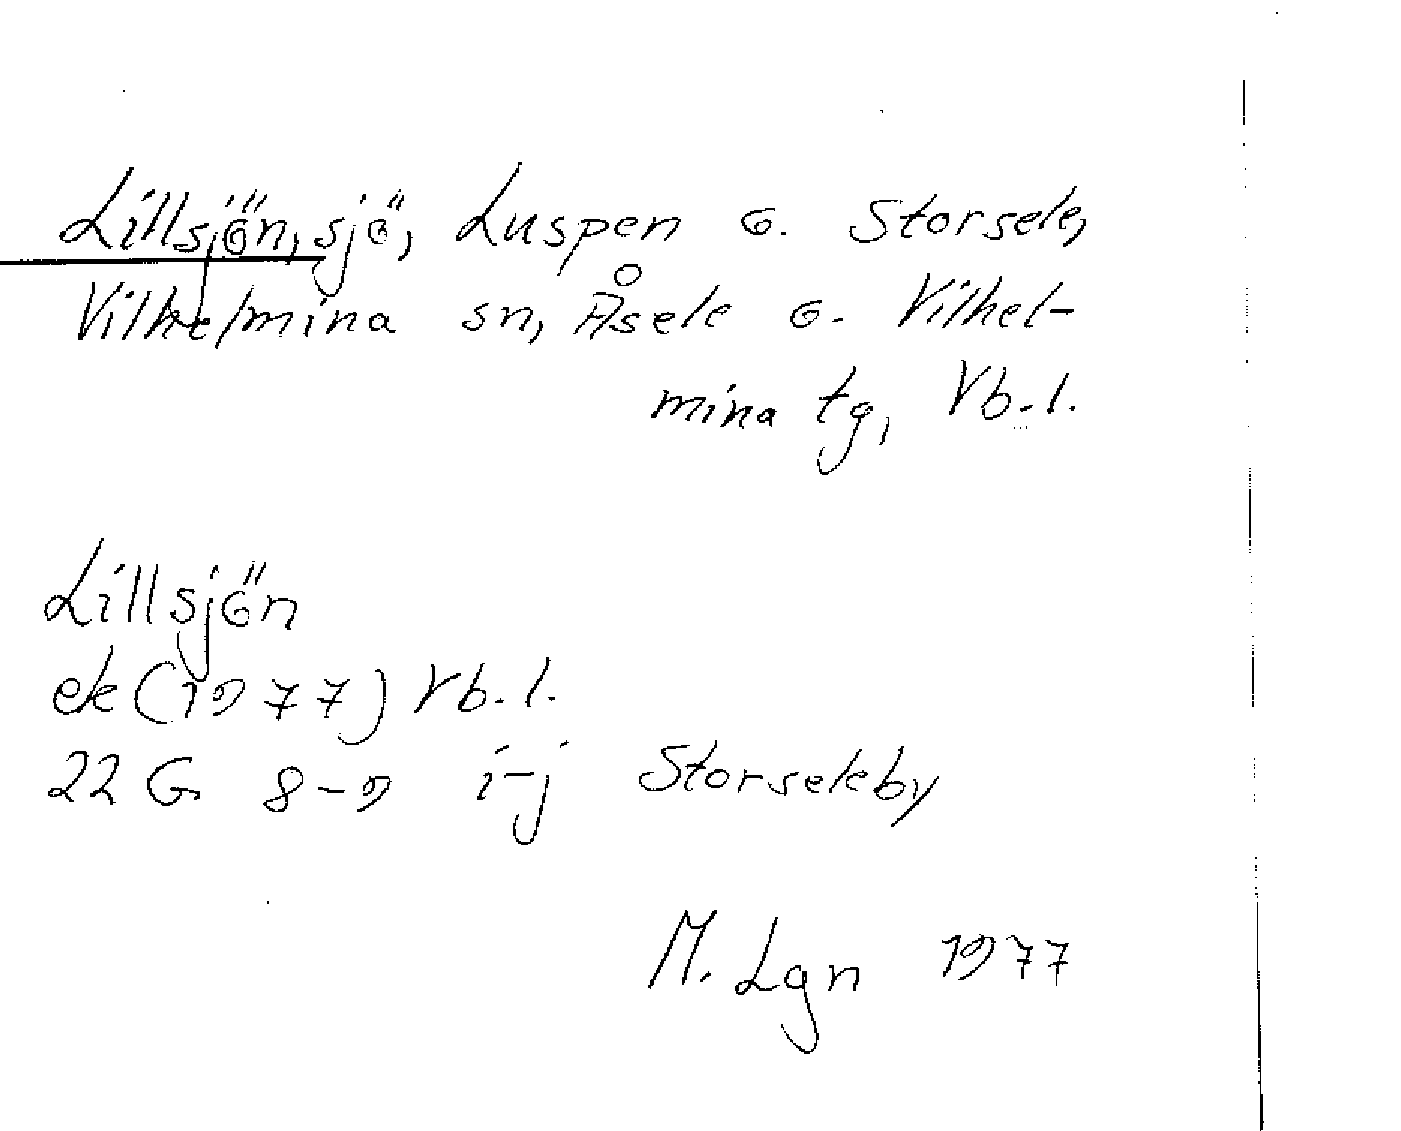 Lillsjön, sjö, Luspen o. Storsele,
Vilhelmina sn, Åsele o. Vilhel-
mina tg, Vb.l.
Lillsjön
ek (1977) Vb.l.
22 G 8-9 i-j Storseleby
M. Lgn 1977